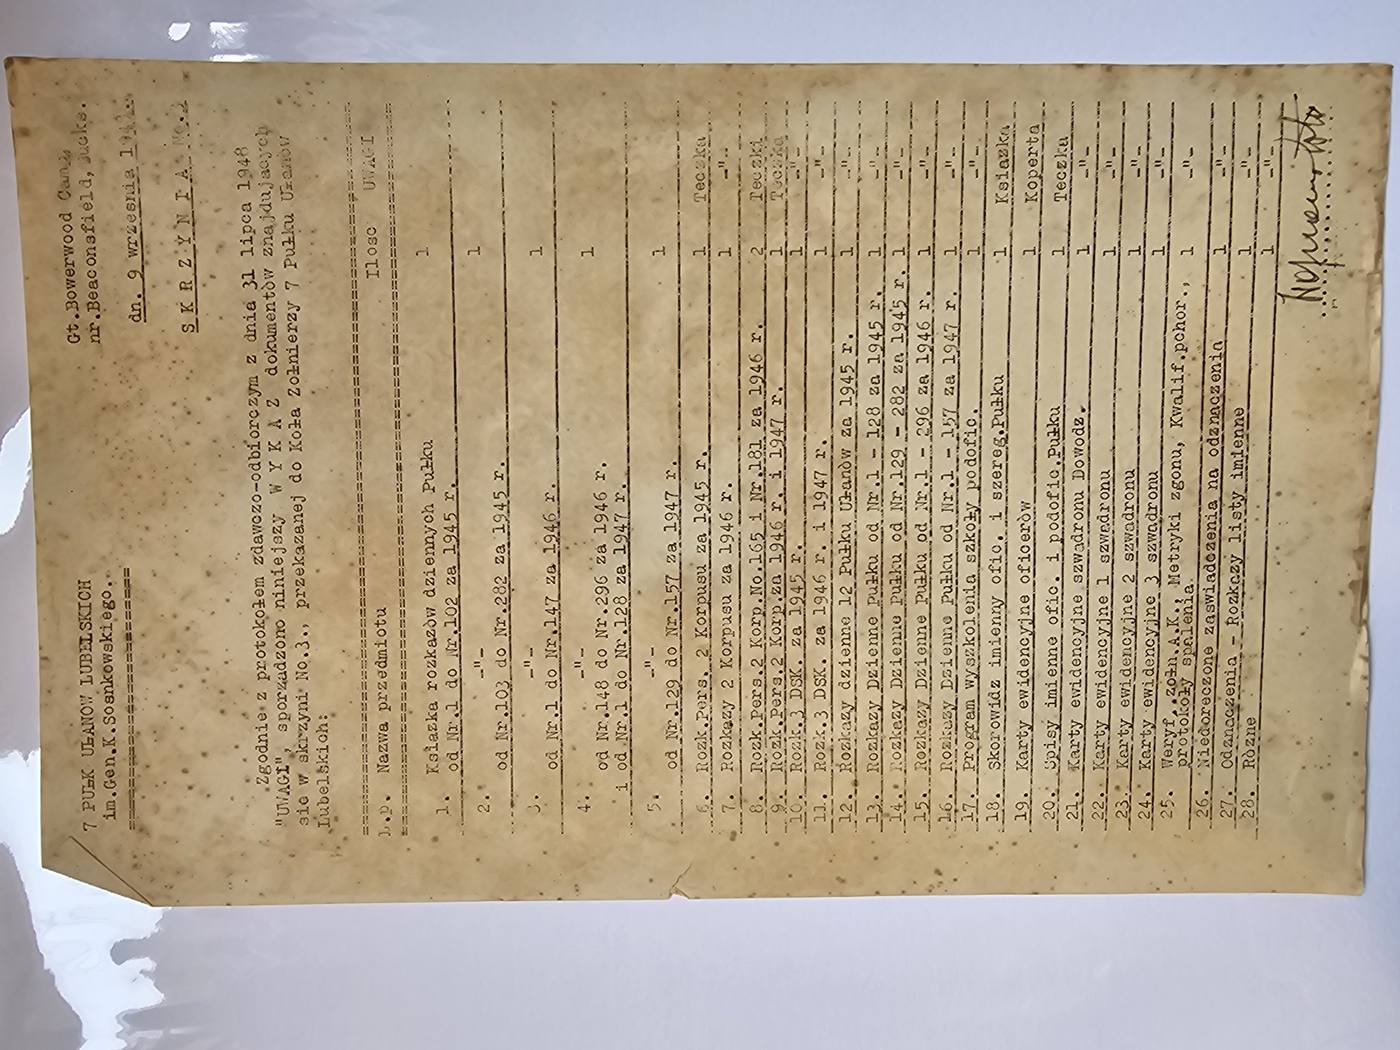 7 PUŁK UŁANOW LUBELSKICH
im.Gen.K.Sosnkowskiego.
Gt.Bowerwood Camp
nr.Beaconsfield, Bucks.
dn. 9 wrzesnia
S K R Z Y N I A No.3
Zgodnie z protokołem zdawczo-odbiorczym z dnia 31 lipca 1948
"UWAGI", sporządzono niniejszy W Y K A Z dokumentòw znajdujacych
sie w skrzyni No.3., przekazanej do Koła Żołnierzy 7 Pułku Ułanow
Lubelskich:
L.p. Nazwa przedmiotu Ilosc UWAGI
Ksiazka rozkazòw dziennych Pułku 1
1. od Nr.1 do Nr.102 za 1945 r.
2. -"- 1
od Nr.103 do Nr.282 za 1945 r.
3. -"- 1
od Nr.1 do Nr.147 za 1946 r.
4. -"- 1
od Nr.148 do Nr.296 za 1946 r.
i od Nr.1 do Nr.128 za 1947 r.
5. -"- 1
od Nr.129 do Nr.157 za 1947 r.
6. Rozk.Pers. 2 Korpusu za 1945 r. 1 Teczka
7. Rozkazy 2 Korpusu za 1946 r. 1 -"-
8. Rozk.Pers.2 Korp.No.165 i Nr.181 za 1946 r. 2 Teczki
9. Rozk.Pers.2 Korp.za 1946 r. i 1947 r. 1 Teczka
10. Rozk.3 DSK. za 1945 r. 1 -"-
11. Rozk.3 DSK. za 1946 r. i 1947 r. 1 -"-
12. Rozkazy dzienne 12 Pułku Ułanòw za 1945 r. 1 -"-
13. Rozkazy Dzienne Pułku od Nr.1 - 128 za 1945 r. 1 -"-
14. Rozkazy Dzienne Pułku od Nr.129 - 282 za 1945 r. 1 -"-
15. Rozkazy Dzienne Pułku od Nr.1 - 296 za 1946 r. 1 -"-
16. Rozkazy Dzienne Pułku od Nr.1 - 157 za 1947 r. 1 -"-
17. Program wyszkolenia szkoły podofic. 1 -"-
18. Skorowidz imienny ofic. i szereg.Pułku 1 Ksiazka
19. Karty ewidencyjne oficeròw 1 Koperta
20. Spisy imienne ofic. i podofic.Pułku 1 Teczka
21. Karty ewidencyjne szwadronu Dowodz. 1 -"-
22. Karty ewidencyjne 1 szwadronu 1 -"-
23. Karty ewidencyjne 2 szwadronu 1 -"-
24. Karty ewidencyjne 3 szwadronu 1 -"-
25. Weryf. żołn.A.K., Metryki zgonu, Kwalif.pohor., 1 -"-
protokoły spalenia.
26. Niedoreczone zaswiadczenia na odznaczenia 1 -"-
27. Odznaczenia - Rozkazy listy imienne 1 -"-
28. Rozne 1 -"-